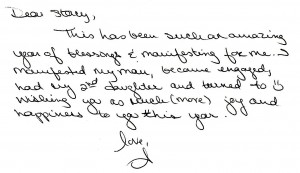 Dear Stacy,
This has been such an amazing
year of blessings & manifesting for me. I
manifested my man, became engaged,
had my 2nd daughter and turned to
wishing you as much (more) joy and
happiness to you this year.
love,
J